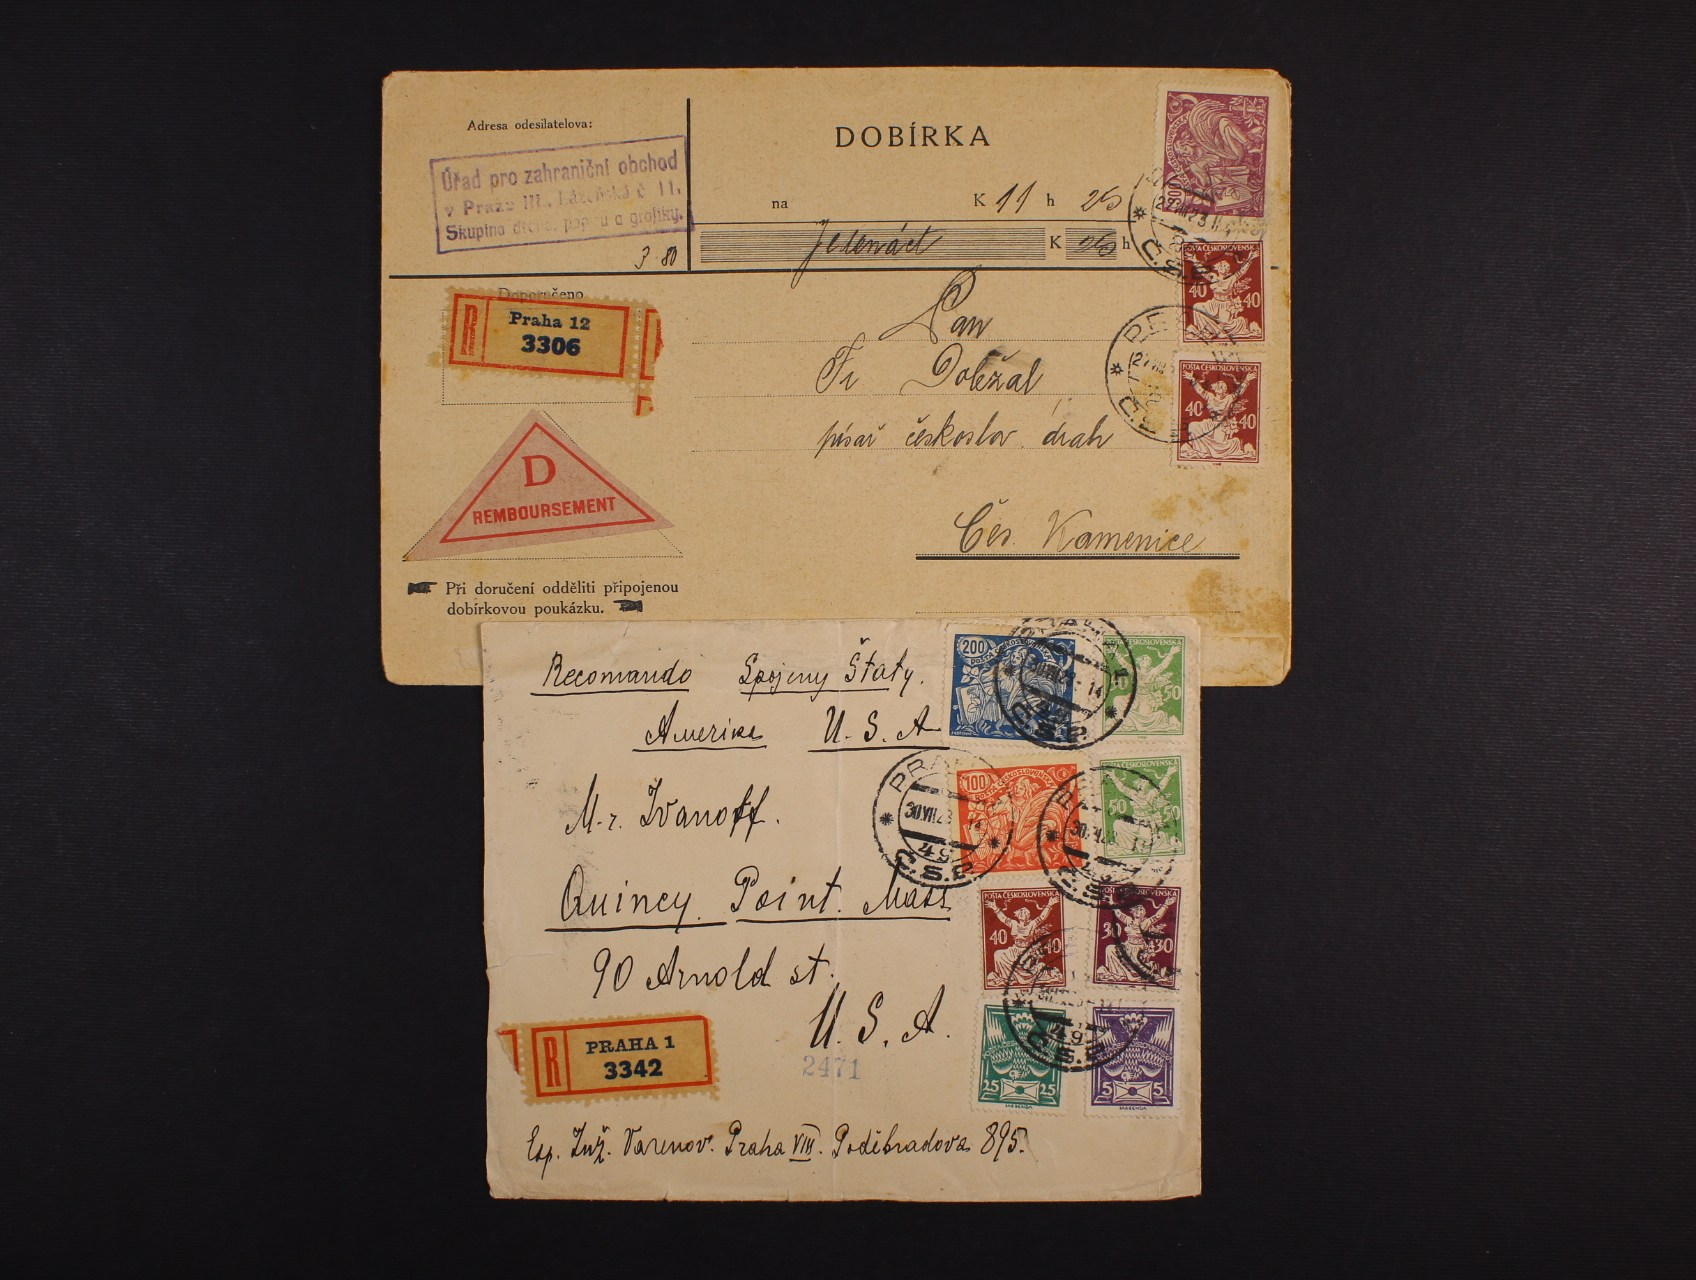 Adresa odesílatelova:
Úřad pro zahraniční obchod
v Praze III., Lázeňská č 11.
Skupina dřeva, papíru a grafiky.
3·80
DOBÍRKA
na K 11 h 25
Jedenáct K 25 h
Doporučeno
Praha 12
3306
Pan
Fr Doležal
písař českoslov. drah
Čes. Kamenice
D
REMBOURSEMENT
Při doručení odděliti připojenou
dobírkovou poukázku.
300
POŠTA ČESKOSLOVENSKÁ
40 40
POŠTA ČESKOSLOVENSKÁ
40 40
Č.S.P.
Recomando Spojeny Štaty.
Amerika U. S. A
M-r. Ivanoff.
Quincy Point. Mass
90 Arnold st.
U. S. A.
R
PRAHA 1
3342
2471
Exp. Inž. Varenov. Praha VIII. Poděbradova 895.
200
POŠTA ČESKOSLOVENSKÁ
50
100
POŠTA ČESKOSLOVENSKÁ
50 50
POŠTA ČESKOSLOVENSKÁ
40 40
30 30
25 25
5 5
PRAHA
30.VIII.23 14
49
Č.S.P.